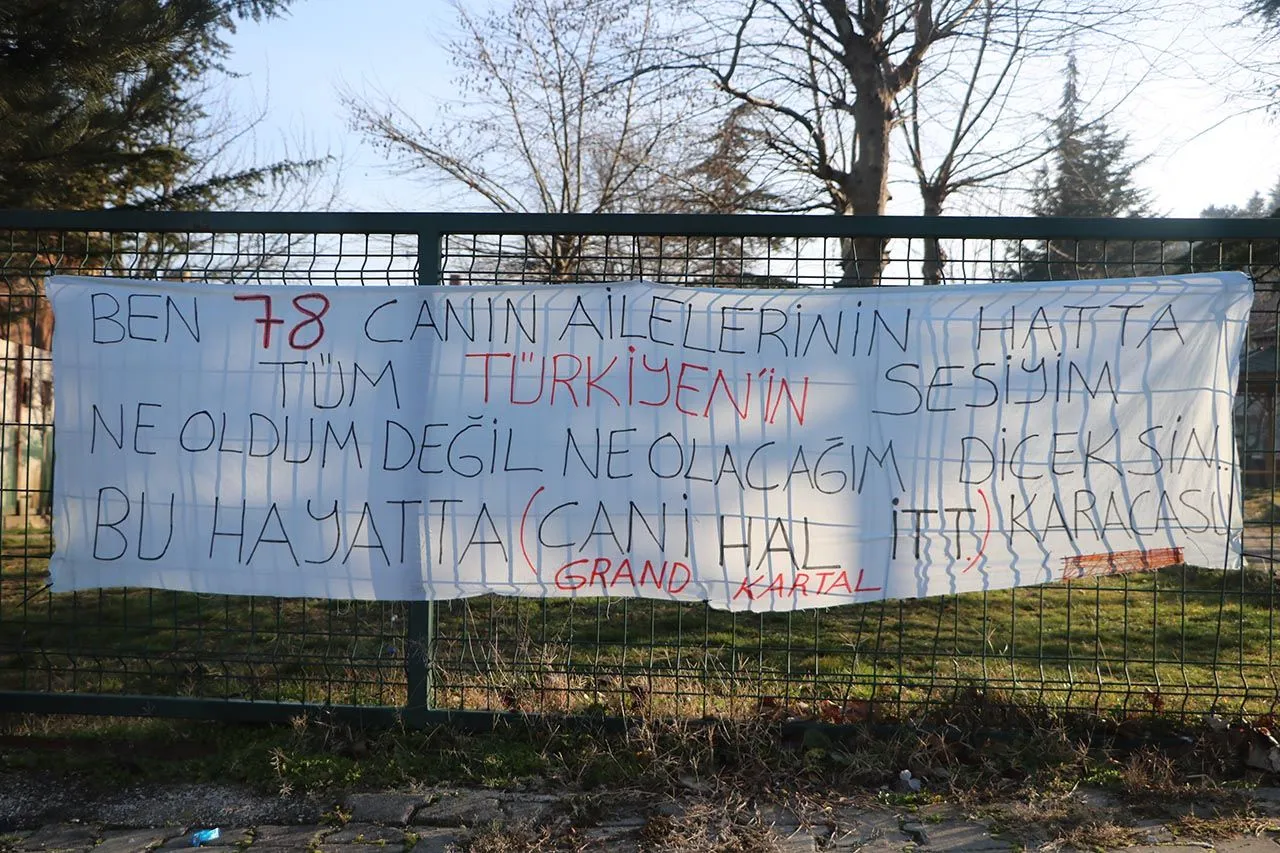 BEN 78 CANIN AİLELERİNİN HATTA
TÜM TÜRKİYEN'İN SESİYİM
NE OLDUM DEĞİL NE OLACAĞIM DİCEKSİN.
BU HAYATTA (CANİ HAL İTT) KARACASU
GRAND KARTAL